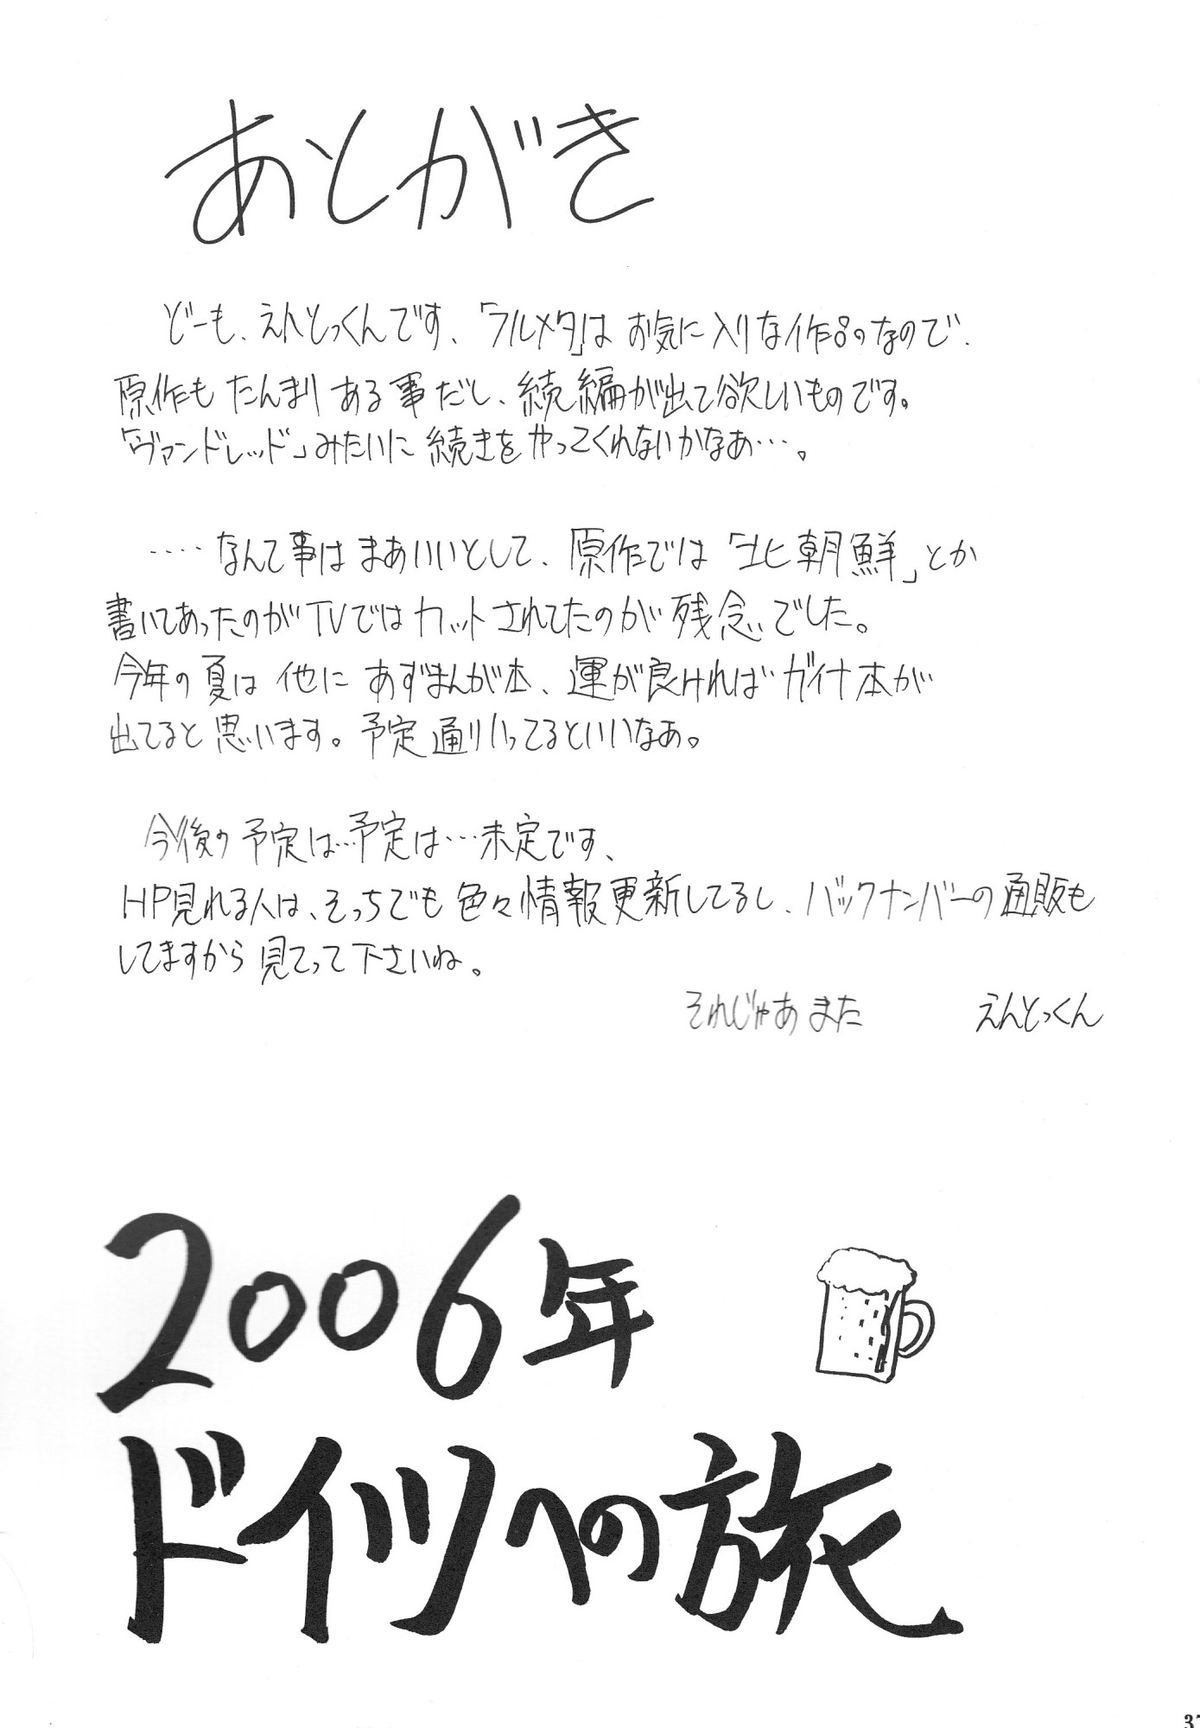 あとがき
どーも、えんとっくんです、「フルメタ」はお気に入りな作品のなので、
原作もたんまりある事だし、続編が出て欲しいものです。
「ヴァンドレッド」みたいに続きをやってくれないかなあ…。
‥‥なんて事はまあいいとして、原作では「北朝鮮」とか
書いてあったのがTVではカットされてたのが残念でした。
今年の夏は他にあずまんが本、運が良ければガイナ本が
出てると思います。予定通りいってるといいなぁ。
今後の予定は‥予定は…未定です、
HP見れる人は、そっちでも色々情報更新してるし、バックナンバーの通販も
してますから見てって下さいね。
それじゃあまた えんとっくん
2006年
ドイツへの旅